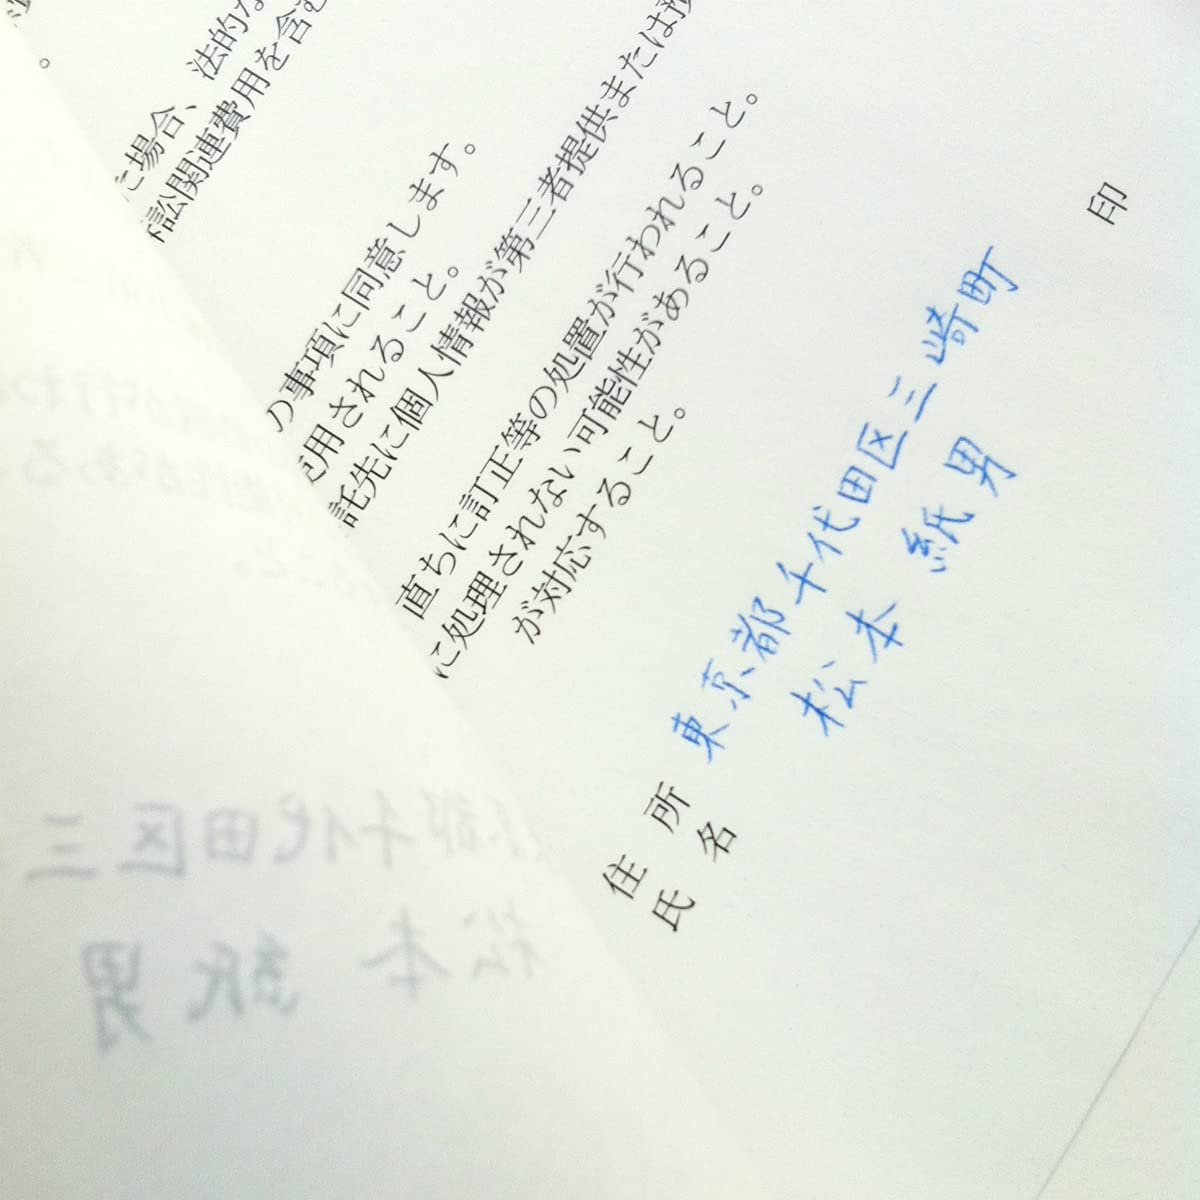 た場合、法的な
訴訟関連費用を含む
の事項に同意します。
使用されること。
託先に個人情報が第三者提供または
直ちに訂正等の処置が行われること。
に処理されない可能性があること。
が対応すること。
住 所 東京都千代田区三崎町
氏 名 松本 紙男 印
京都千代田区三
松本 紙男